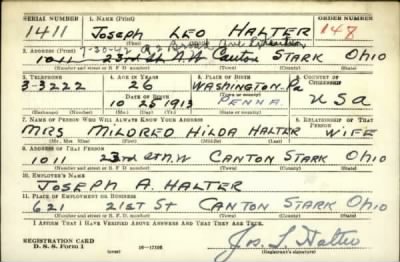 SERIAL NUMBER 1. NAME (Print) ORDER NUMBER
1411 JOSEPH LEO HALTER 148
(First) (Middle) (Last)
2. ADDRESS (Print) 7-30-42
1011 23rd St N.W. CANTON STARK OHIO
(Number and street or R. F. D. number) (Town) (County) (State)
3. TELEPHONE 4. AGE IN YEARS 5. PLACE OF BIRTH 6. COUNTRY OF CITIZENSHIP
3-3222 26 WASHINGTON-Pa
DATE OF BIRTH (Town or county)
10 25 1913 PENNA. USA
(Exchange) (Number) (Mo.) (Day) (Yr.) (State or country)
7. NAME OF PERSON WHO WILL ALWAYS KNOW YOUR ADDRESS 8. RELATIONSHIP OF THAT PERSON
MRS MILDRED HILDA HALTER WIFE
(Mr., Mrs., Miss) (First) (Middle) (Last)
9. ADDRESS OF THAT PERSON
1011 23rd St N.W CANTON STARK OHIO
(Number and street or R. F. D. number) (Town) (County) (State)
10. EMPLOYER'S NAME
JOSEPH A. HALTER
11. PLACE OF EMPLOYMENT OR BUSINESS
621 21ST St CANTON STARK OHIO
(Number and street or R. F. D. number) (Town) (County) (State)
I AFFIRM THAT I HAVE VERIFIED ABOVE ANSWERS AND THAT THEY ARE TRUE.
REGISTRATION CARD
D. S. S. Form 1 16-17105 Jos. L. Halter
(Registrant's signature)